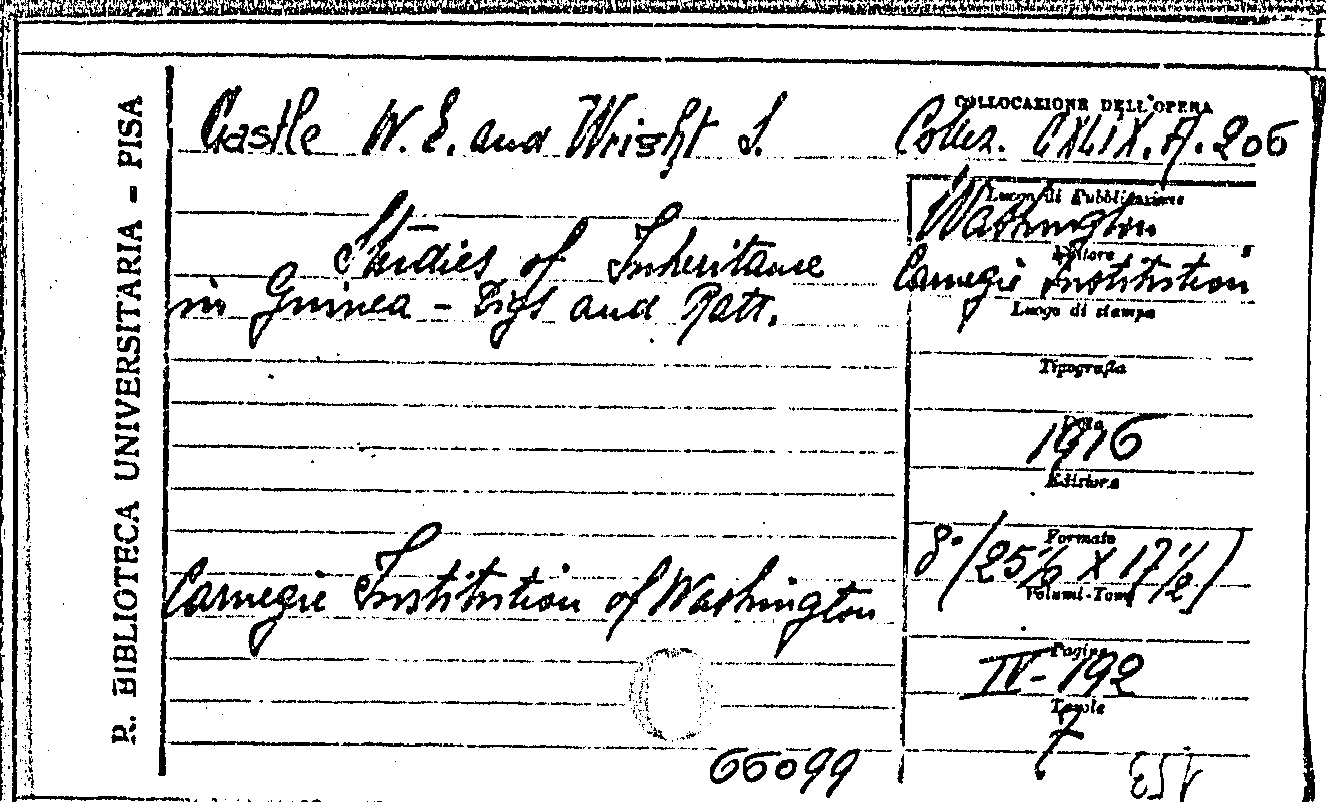 R. BIBLIOTECA UNIVERSITARIA - PISA
Castle W. E. and Wright S.
Studies of Inheritance
in Guinea - Pigs and Ratt.
Carnegie Institution of Washington
66099
COLLOCAZIONE DELL'OPERA
Collez. CXLIX. A. 206
Luogo di Pubblicazione
Washington
Editore
Carnegie Institution
Luogo di stampa
Tipografia
Data
1916
Editore
Formato
8° (25½ X 17½)
Volumi-Tomi
Pagine
IV-192
Tavole
7